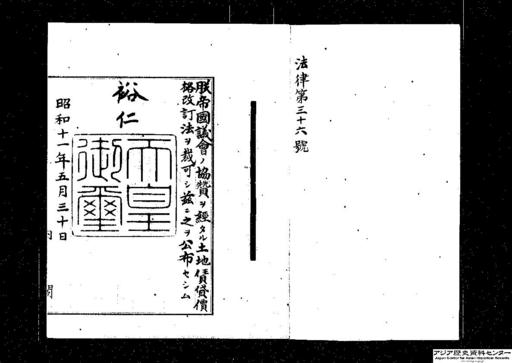 法律第三十六號
朕帝國議會ノ協贊ヲ經タル土地賃貸價
格改訂法ヲ裁可シ茲ニ之ヲ公布セシム
裕仁
天皇
御璽
昭和十一年五月三十日
内閣
アジア歴史資料センター
Japan Center for Asian Historical Records